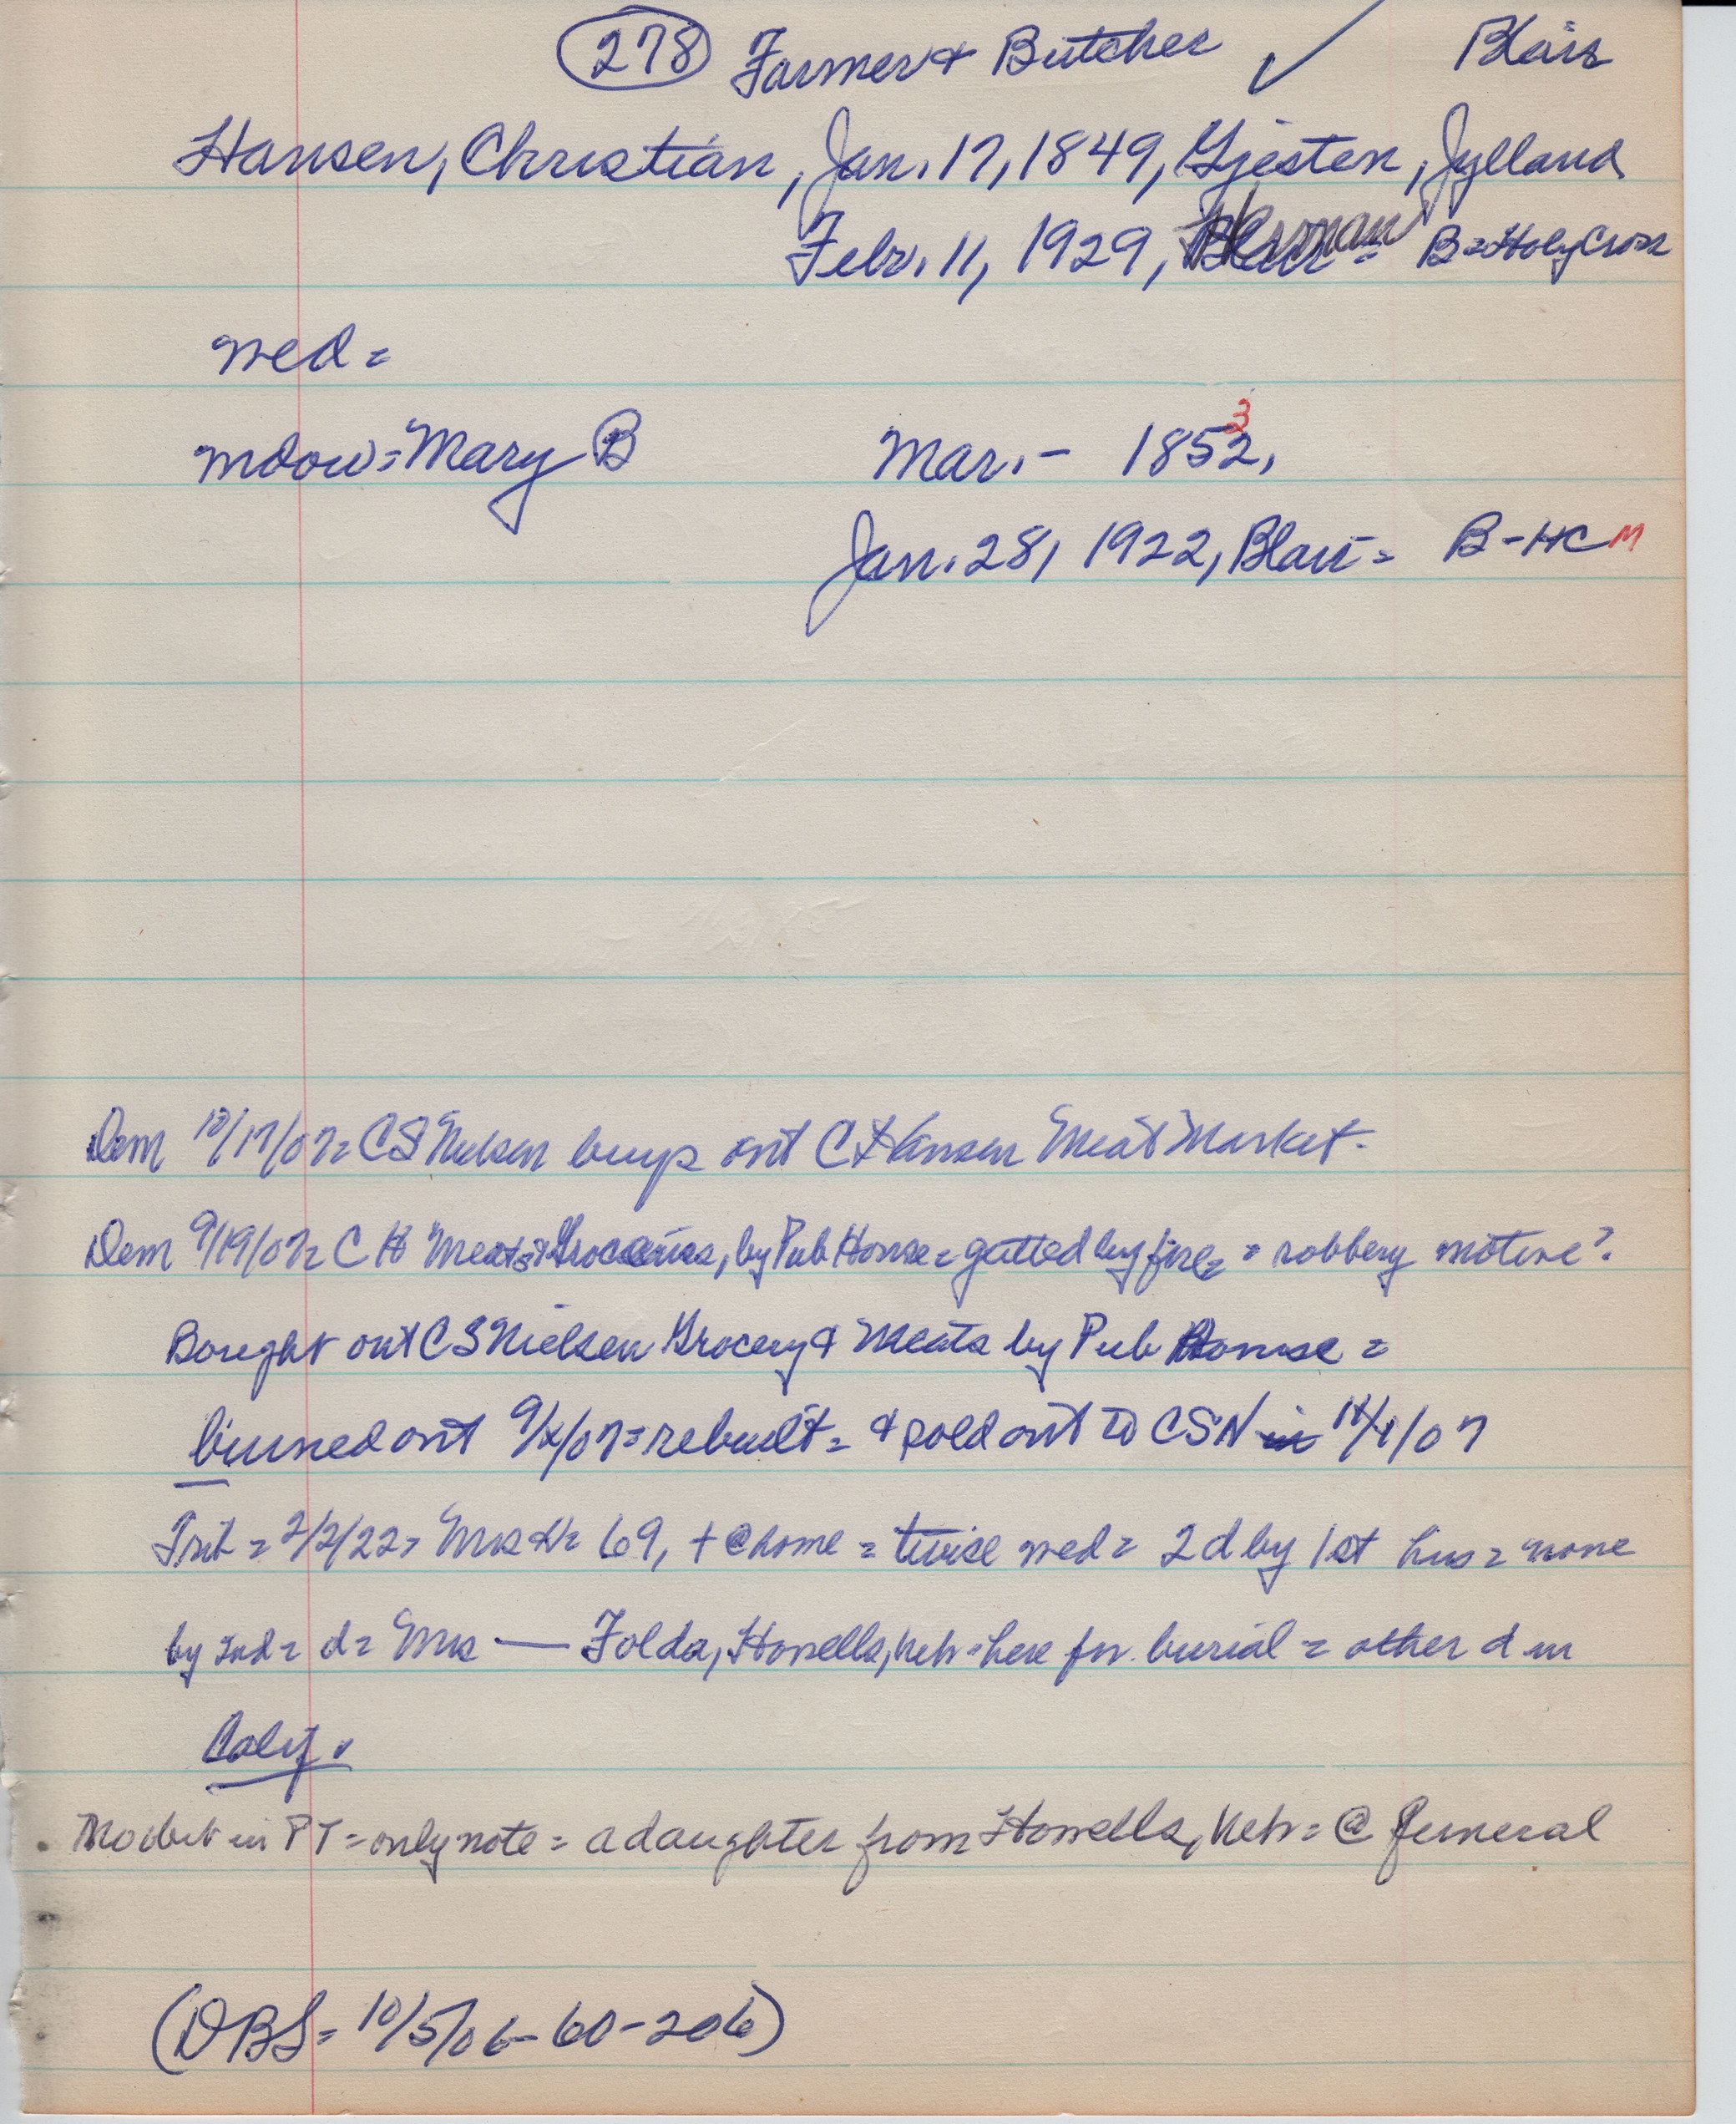 278 Farmer & Butcher ✓ Blair
Hansen, Christian, Jan. 17, 1849, Gjesten, Jylland
Febr. 11, 1929, Herman = B=Holy Cross
wed =
wdow = Mary B Mar. - 1852, 3
Jan. 28, 1922, Blair = B-HC M
Dem 10/17/07= CS Nielsen buys out C Hansen Meat Market.
Dem 9/19/07= C H Meats & Groceries, by Pub House = gutted by fire = robbery motive?
Bought out CS Nielsen Grocery & Meats by Pub House =
burned out 9/x/07 = rebuilt = & sold out to CSN in /07
Trib = 2/2/22= Mrs H= 69, + @ home = twice wed = 2 d by 1st hus = none
by 2nd = d = Mrs — Folda, Howells, Neb = here for burial = other d in
Calif.
No obit in PT = only note = a daughter from Howells, Neb = @ funeral
(DBS= 10/5/06-60-206)